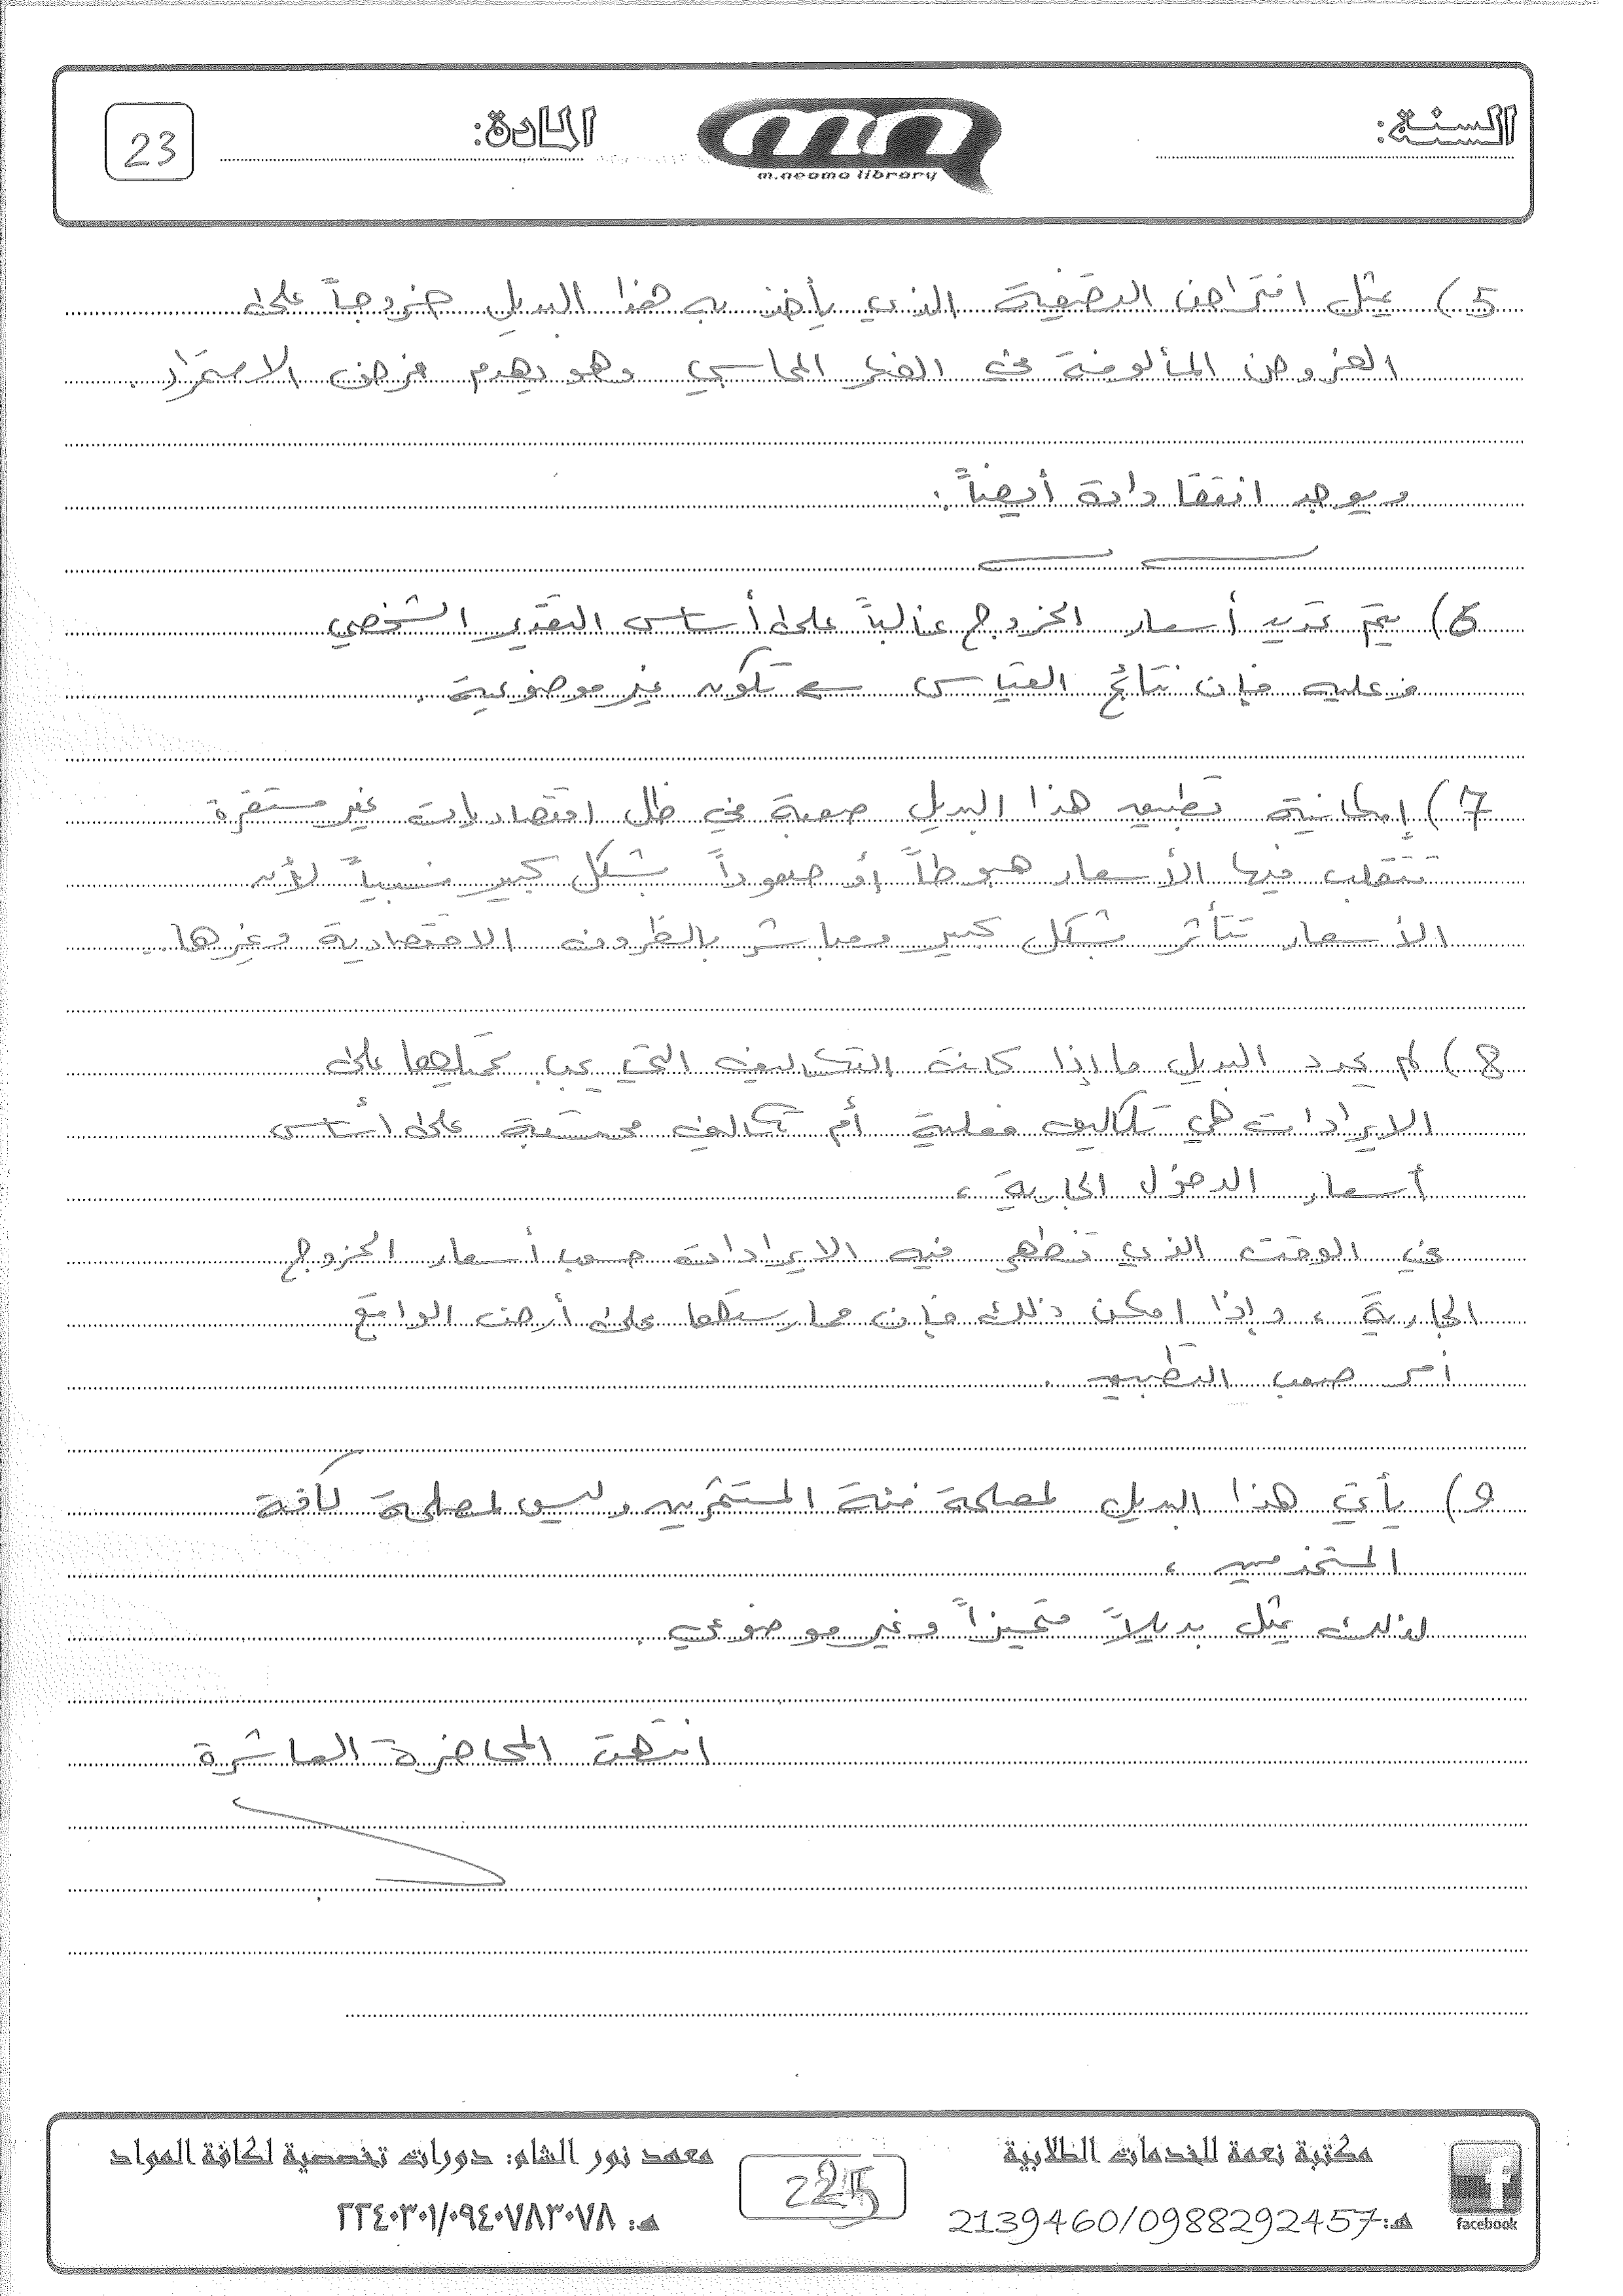 السنة:
m.neama library
المادة:
23
5) يمثل افتراض التصفية الذي يأخذ به هذا البديل خروجاً على
الفروض المألوفة في الفكر المحاسبي وهو يهدم فرض الاستمرار.
ويوجد انتقادات أيضاً:
6) يتم تحديد أسعار الخروج غالباً على أساس التقدير الشخصي
وعليه فإن نتائج القياس تكون غير موضوعية.
7) إمكانية تطبيق هذا البديل صعبة في ظل اقتصاديات غير مستقرة
تتقلب فيها الأسعار هبوطاً أو صعوداً بشكل كبير نسبياً لأن
الأسعار تتأثر بشكل كبير ومباشر بالظروف الاقتصادية وغيرها..
8) لم يحدد البديل ما إذا كانت التكاليف التي يجب تحميلها على
الايرادات هي تكاليف فعلية أم تكاليف محتسبة على أساس
أسعار الدخول الجارية،
في الوقت الذي تظهر فيه الايرادات حسب أسعار الخروج
الجارية، وإذا امكن ذلك فإن ممارستها على أرض الواقع
أمر صعب التطبيق.
9) يأتي هذا البديل لمصلحة فئة المستثمرين وليس لمصلحة كافة
المستخدمين،
لذلك يمثل بديلاً متحيزاً وغير موضوعي.
انتهت المحاضرة العاشرة
مكتبة نعمة للخدمات الطلابية
هـ:2139460/0988292457
facebook
معهد نور الشام: دورات تخصصية لكافة المواد
هـ: ٢٢٤٠٣٠١/٠٩٤٠٧٨٣٠٧٨